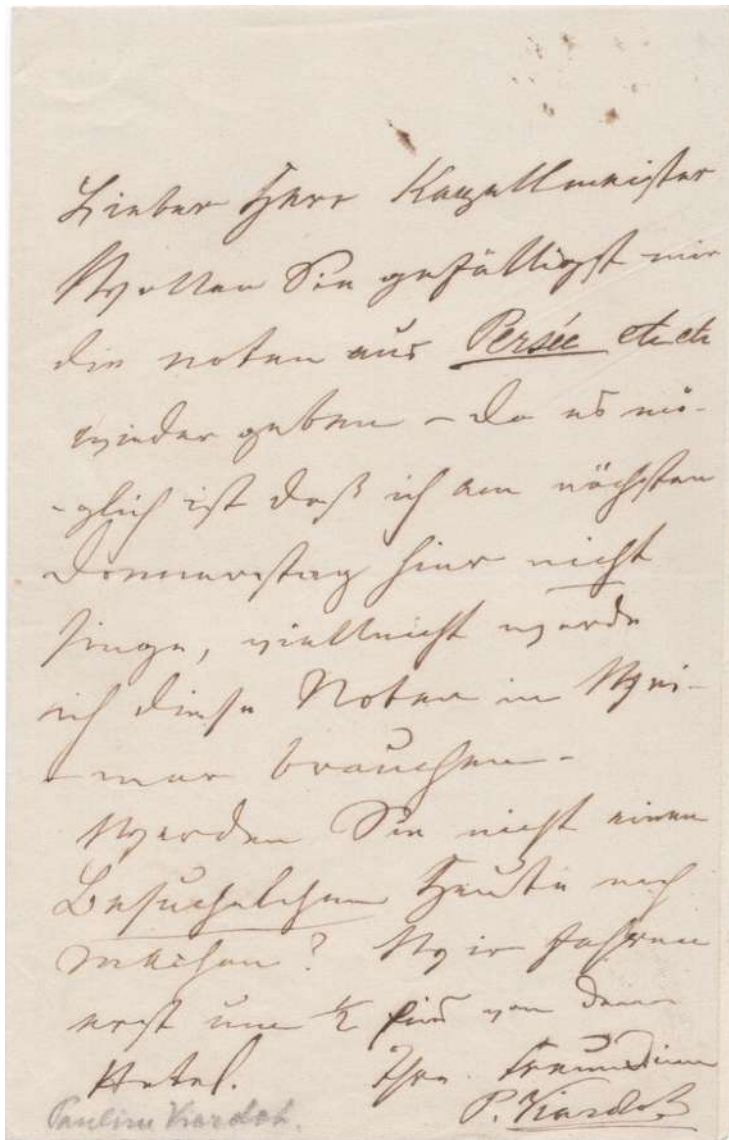 Lieber Herr Kapellmeister
Wollen Sie gefälligst mir
die Noten aus Persée etc etc
wieder geben – da es mö-
-glich ist daß ich am nächsten
Donnerstag hier nicht
singe, vielleicht werde
ich diese Noten in Wei-
-mar brauchen –
Werden Sie nicht einen
Besuchelchen heute noch
machen? Wir fahren
erst um ½ von dem
Hotel. Ihre Freundinn
P. Viardot
Pauline Viardot.